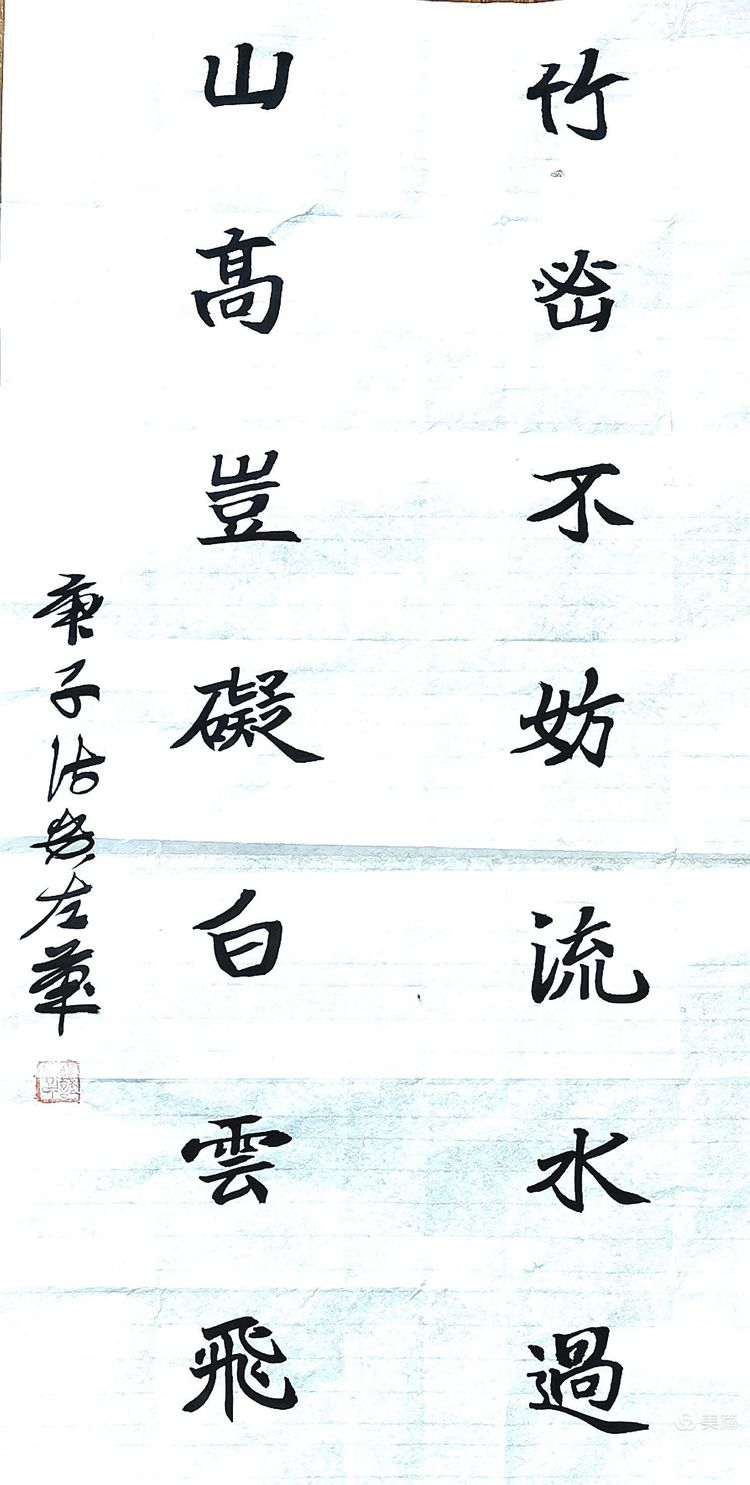 竹密不妨流水過
山高豈礙白雲飛
庚子 左華
美篇